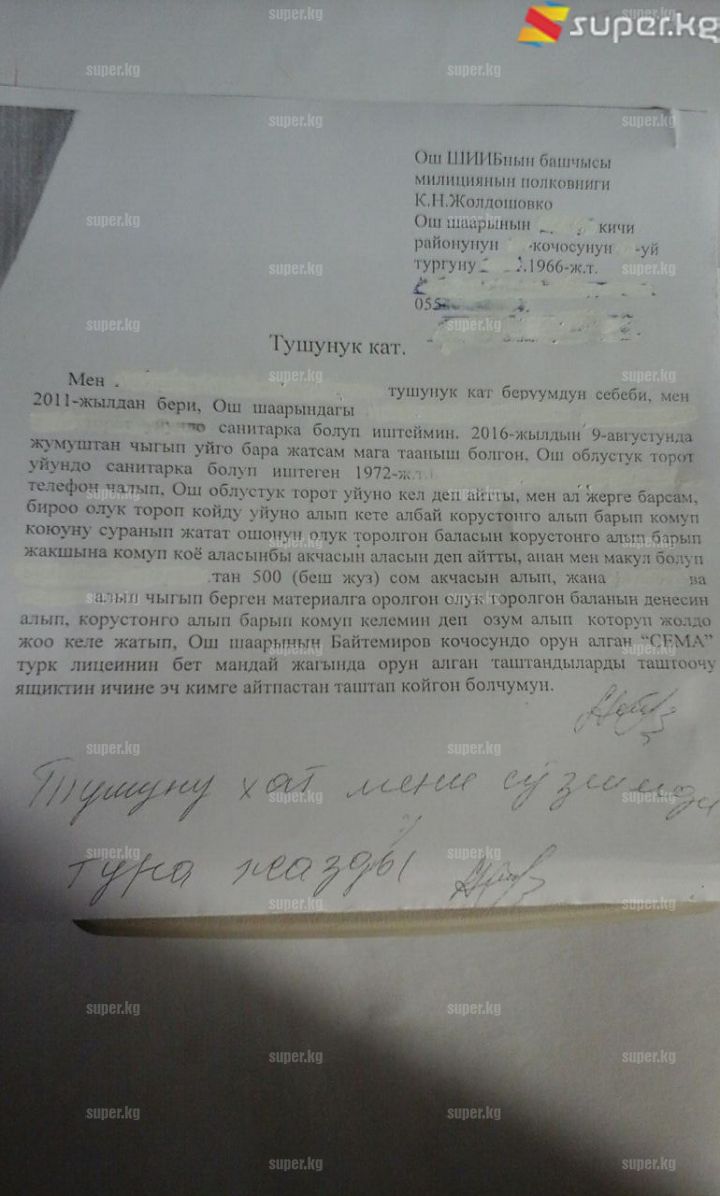 super.kg
Ош ШИИБнын башчысы
милициянын полковниги
К.Н.Жолдошовко
Ош шаарынын кичи
районунун -кочосунун -уй
тургуну .1966-ж.т.
055
Тушунук кат.
Мен тушунук кат беруумдун себеби, мен
2011-жылдан бери, Ош шаарындагы
санитарка болуп иштеймин. 2016-жылдын 9-августунда
жумуштан чыгып уйго бара жатсам мага тааныш болгон, Ош облустук торот
уйундо санитарка болуп иштеген 1972-ж.т.
телефон чалып, Ош облустук торот уйуно кел деп айтты, мен ал жерге барсам,
бироо олук тороп койду уйуно алып кете албай корустонго алып барып комуп
коюуну суранып жатат ошонун олук торолгон баласын корустонго алып барып
жакшына комуп коё аласынбы акчасын аласын деп айтты, анан мен макул болуп
.тан 500 (беш жуз) сом акчасын алып, жана ва
алып чыгып берген материалга оролгон олук торолгон баланын денесин
алып, корустонго алып барып комуп келемин деп озум алып которуп жолдо
жоо келе жатып, Ош шаарынын Байтемиров кочосундо орун алган “СЕМА”
турк лицеинин бет мандай жагында орун алган таштандыларды таштоочу
ящиктин ичине эч кимге айтпастан таштап койгон болчумун.
Тушуну хат мени сўзимди
тура жазды